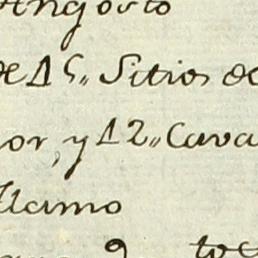 Angosto
de 15,, Sitios de
or, y 12,, Cava
llamo